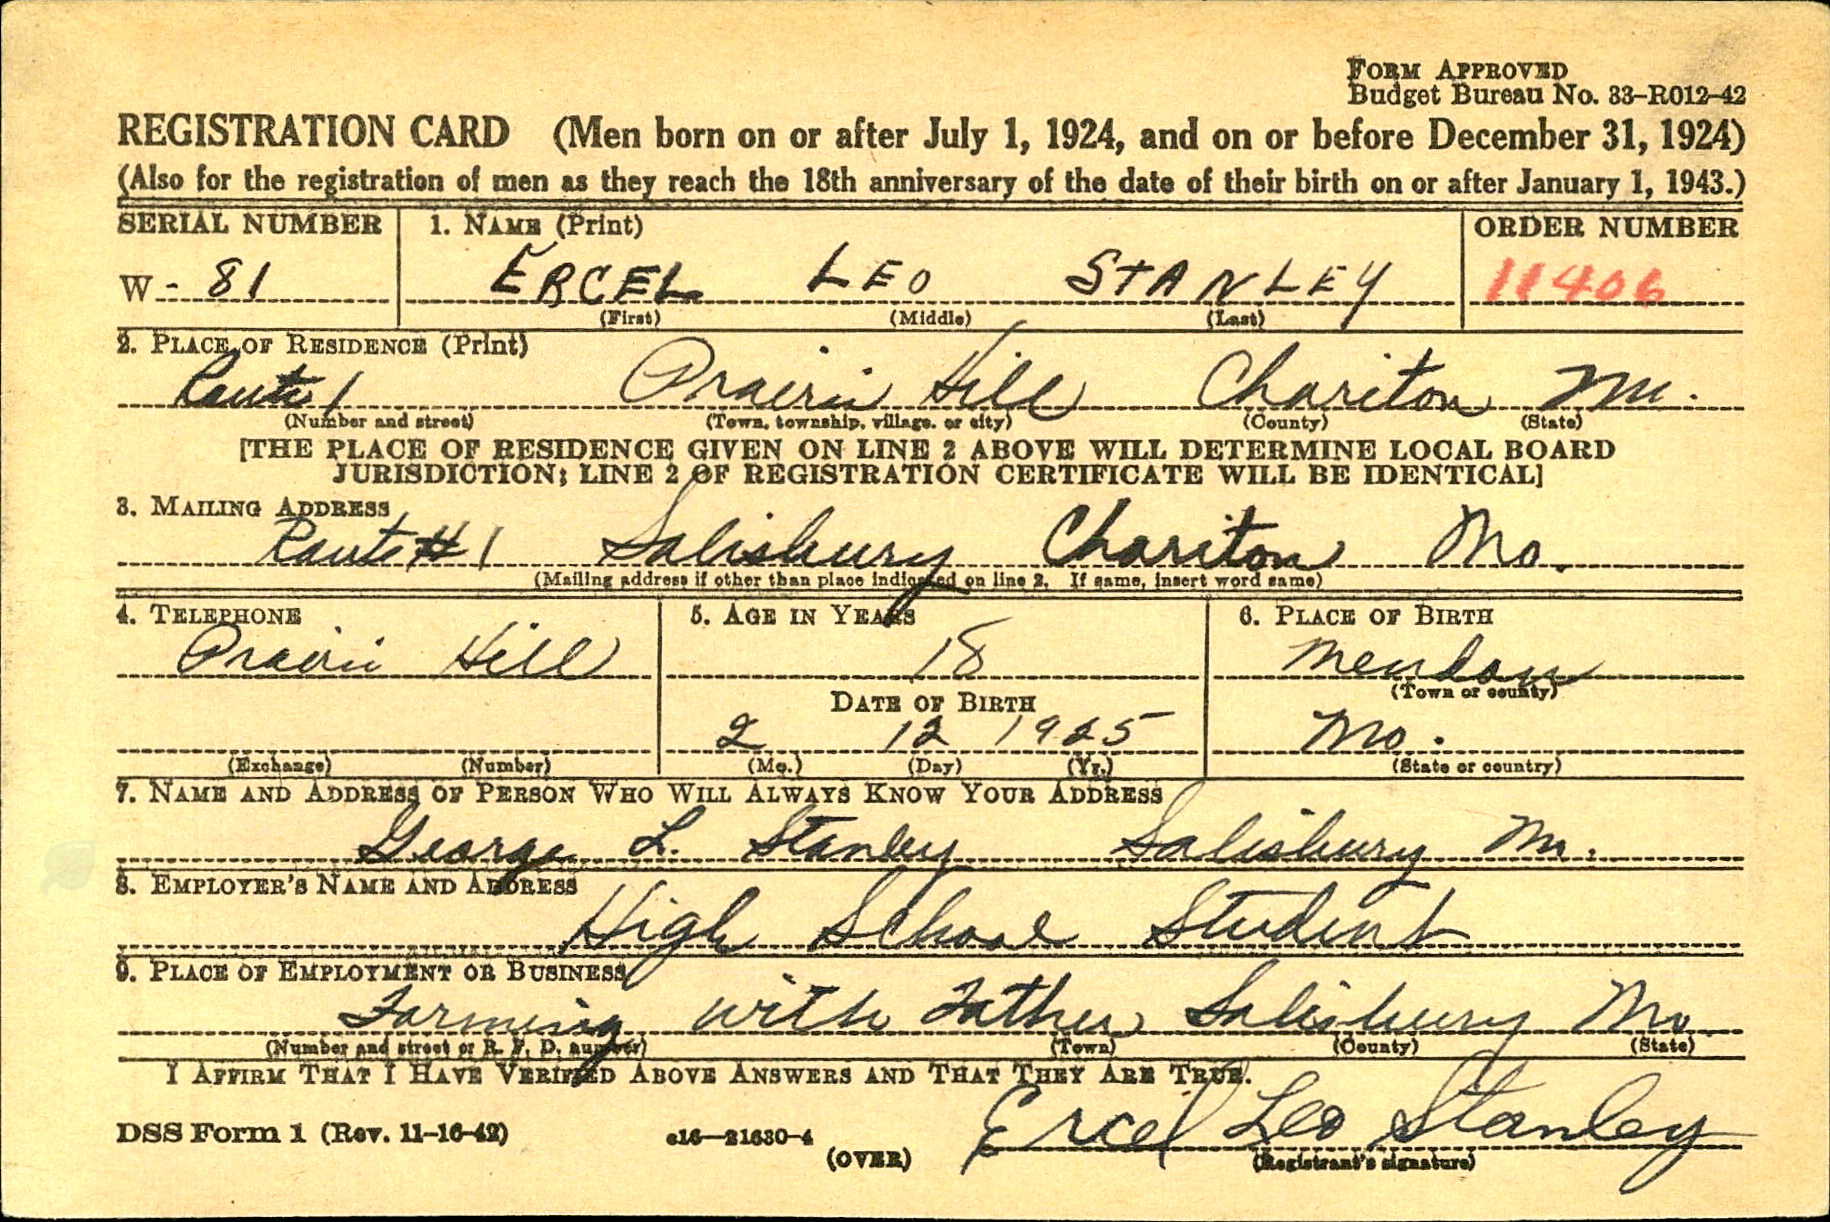 FORM APPROVED
Budget Bureau No. 33-R012-42
REGISTRATION CARD (Men born on or after July 1, 1924, and on or before December 31, 1924)
(Also for the registration of men as they reach the 18th anniversary of the date of their birth on or after January 1, 1943.)
SERIAL NUMBER 1. NAME (Print) ORDER NUMBER
W - 81 ERCEL LEO STANLEY 11406
(First) (Middle) (Last)
2. PLACE OF RESIDENCE (Print)
Route 1 Prairie Hill Chariton Mo.
(Number and street) (Town, township, village, or city) (County) (State)
[THE PLACE OF RESIDENCE GIVEN ON LINE 2 ABOVE WILL DETERMINE LOCAL BOARD
JURISDICTION; LINE 2 OF REGISTRATION CERTIFICATE WILL BE IDENTICAL]
3. MAILING ADDRESS
Route # 1 Salisbury Chariton Mo.
(Mailing address if other than place indicated on line 2. If same, insert word same)
4. TELEPHONE 5. AGE IN YEARS 6. PLACE OF BIRTH
Prairie Hill 18 Mendon
(Town or county)
DATE OF BIRTH
2 12 1925 Mo.
(Exchange) (Number) (Mo.) (Day) (Yr.) (State or country)
7. NAME AND ADDRESS OF PERSON WHO WILL ALWAYS KNOW YOUR ADDRESS
George L. Stanley Salisbury Mo.
8. EMPLOYER'S NAME AND ADDRESS
High School Student
9. PLACE OF EMPLOYMENT OR BUSINESS
Farming with Father Salisbury Mo
(Number and street or R. F. D. number) (Town) (County) (State)
I AFFIRM THAT I HAVE VERIFIED ABOVE ANSWERS AND THAT THEY ARE TRUE.
DSS Form 1 (Rev. 11-16-42) e16-21630-4 Ercel Leo Stanley
(OVER) (Registrant's signature)